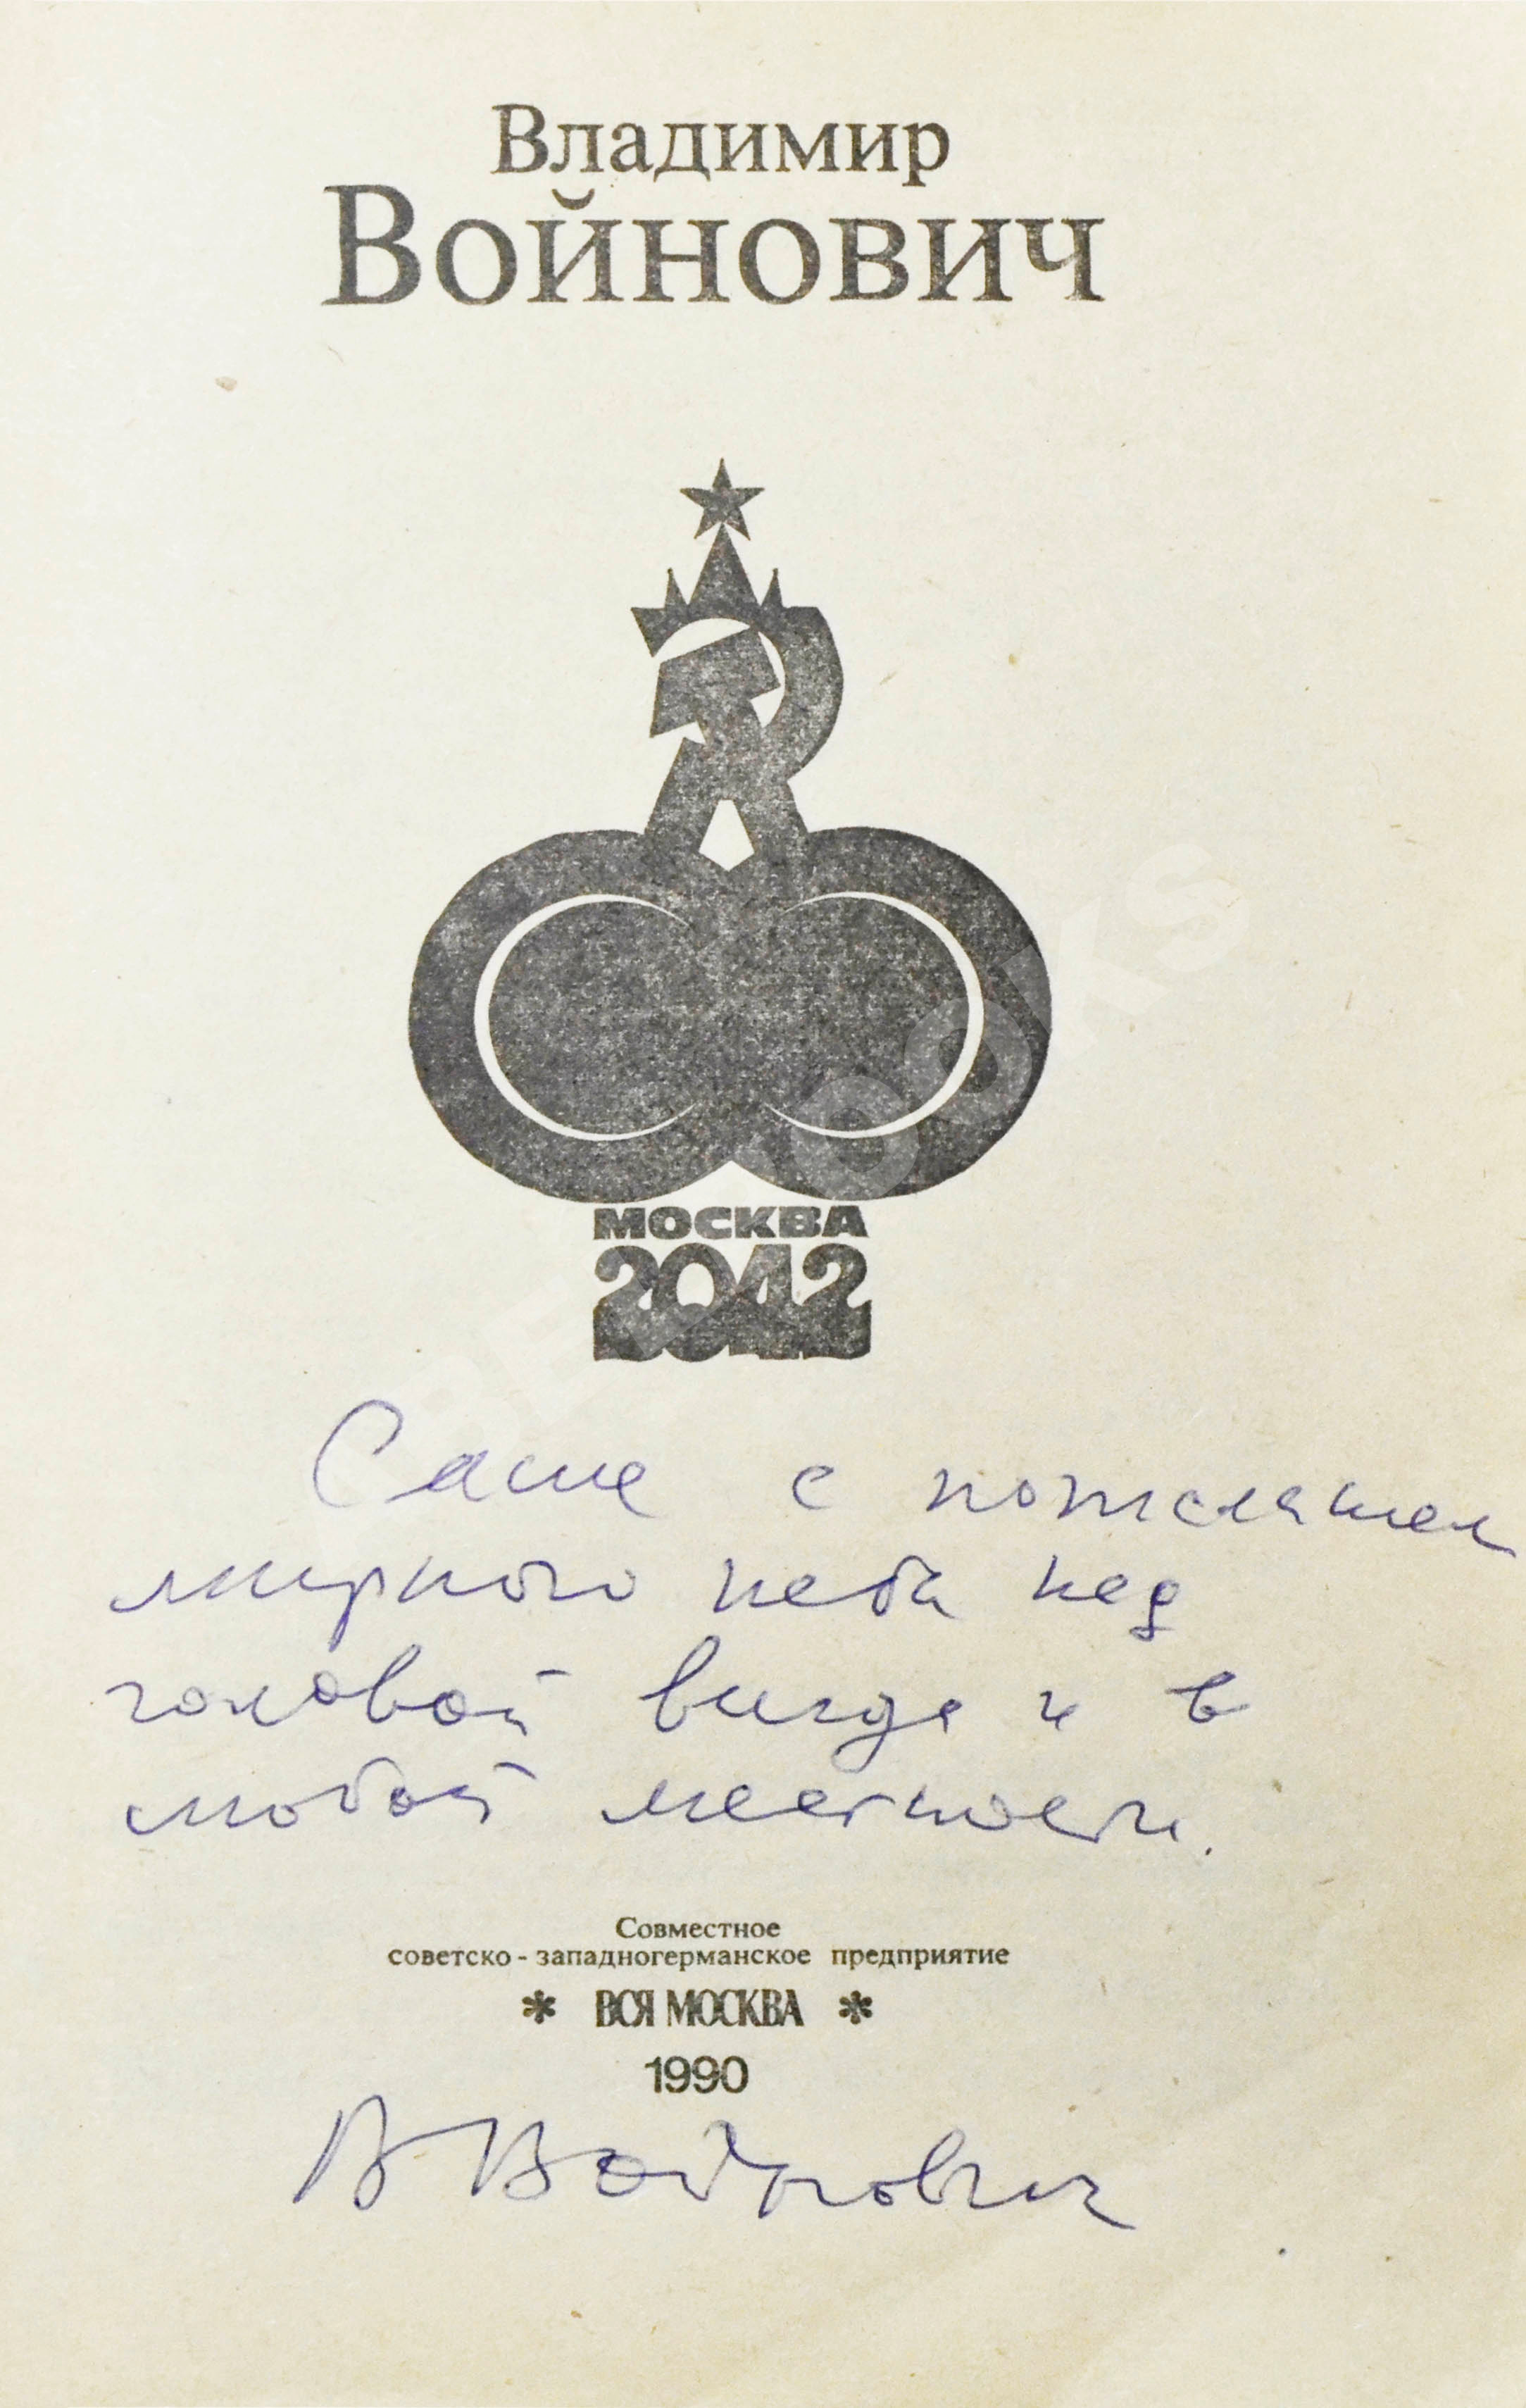 Владимир
Войнович
МОСКВА
2042
Саше с пожеланием
мирного неба над
головой всегда и в
любой местности.
Совместное
советско-западногерманское предприятие
* ВСЯ МОСКВА *
1990
В Войнович